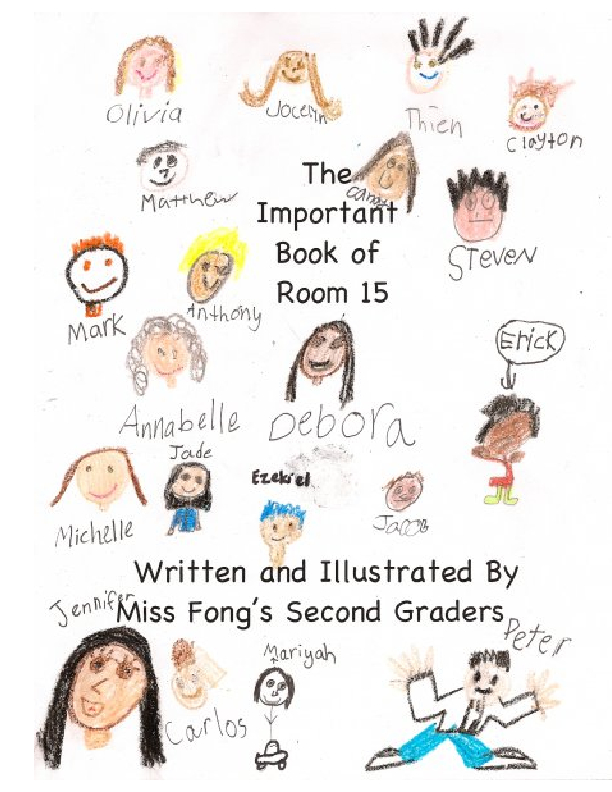 Olivia
Jocelyn
Thien
Clayton
Matthew
The
Important
Book of
Room 15
Steven
Mark
Anthony
Erick
Annabelle
Debora
Jade
Ezekiel
Michelle
Jacob
Written and Illustrated By
Jennifer
Miss Fong's Second Graders
Peter
Mariyah
Carlos